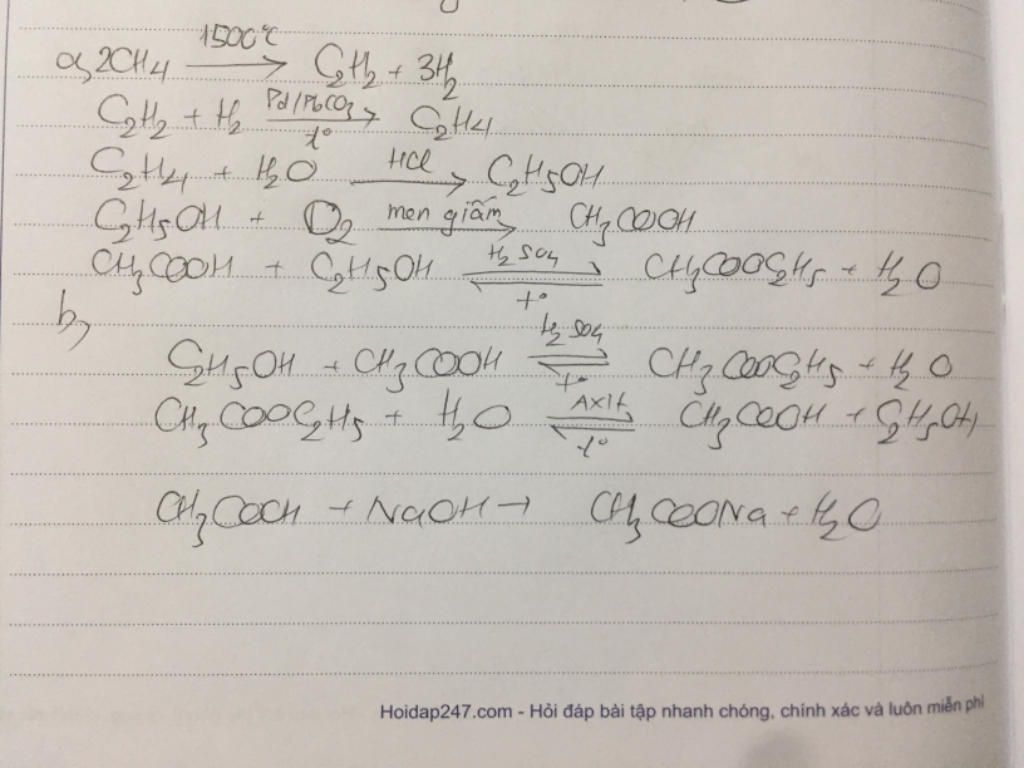 a, 2CH4 —1500°C→ C2H2 + 3H2
C2H2 + H2 —Pd/PbCO3, t°→ C2H4
C2H4 + H2O —HCl→ C2H5OH
C2H5OH + O2 —men giấm→ CH3COOH
CH3COOH + C2H5OH ⇌ (H2SO4, t°) CH3COOC2H5 + H2O
b,
C2H5OH + CH3COOH ⇌ (H2SO4, t°) CH3COOC2H5 + H2O
CH3COOC2H5 + H2O ⇌ (Axit, t°) CH3COOH + C2H5OH
CH3COOH + NaOH → CH3COONa + H2O
Hoidap247.com - Hỏi đáp bài tập nhanh chóng, chính xác và luôn miễn phí